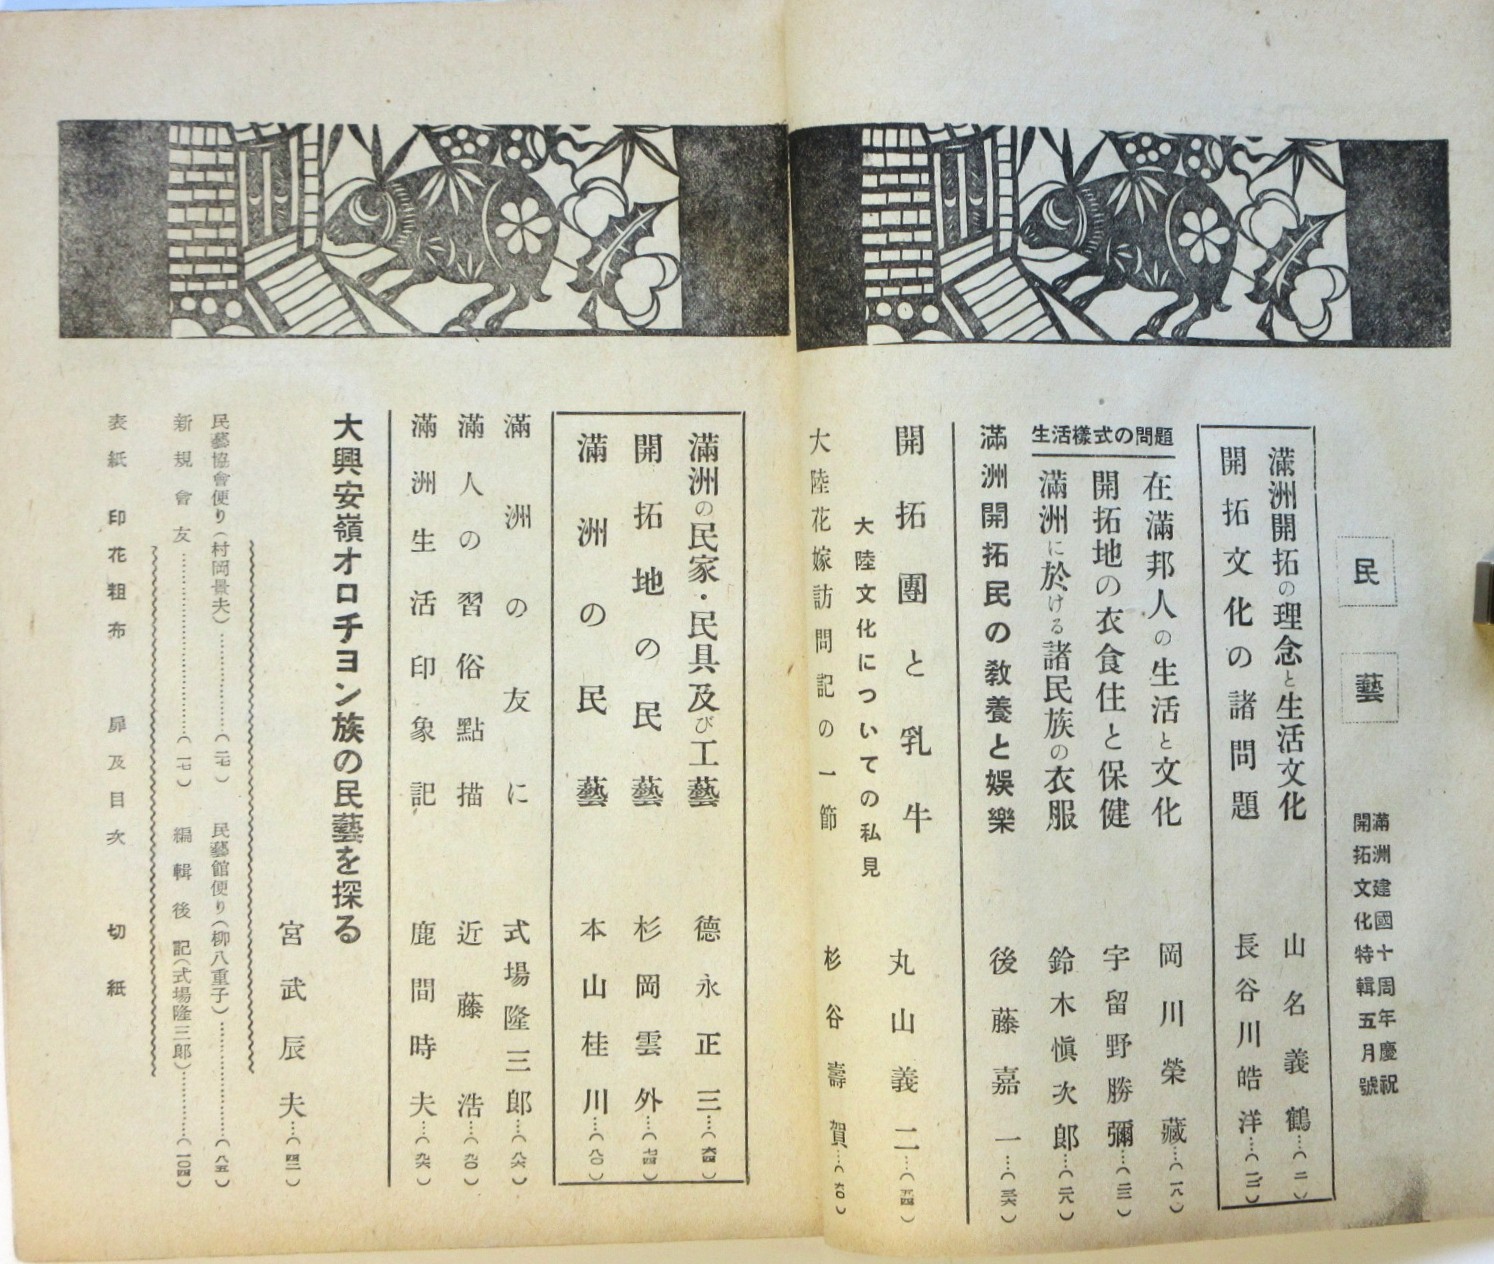 民藝
滿洲建國十周年慶祝
開拓文化特輯五月號
滿洲開拓の理念と生活文化 山名義鶴…(二)
開拓文化の諸問題 長谷川皓洋…(一二)
生活樣式の問題
在滿邦人の生活と文化 岡川榮藏…(一八)
開拓地の衣食住と保健 宇留野勝彌…(二三)
滿洲に於ける諸民族の衣服 鈴木愼次郎…(二八)
滿洲開拓民の敎養と娛樂 後藤嘉一…(三六)
開拓團と乳牛 丸山義二…(五四)
大陸文化についての私見
大陸花嫁訪問記の一節 杉谷壽賀…(六〇)
滿洲の民家・民具及び工藝 德永正三…(六四)
開拓地の民藝 杉岡雲外…(七四)
滿洲の民藝 本山桂川…(八〇)
滿洲の友に 式場隆三郎…(八六)
滿人の習俗點描 近藤浩…(九〇)
滿洲生活印象記 鹿間時夫…(九六)
大興安嶺オロチヨン族の民藝を探る
宮武辰夫…(四二)
民藝協會便り(村岡景夫)…………(二七) 民藝館便り(柳八重子)…………(八五)
新規會友…………(一七) 編輯後記(式場隆三郎)…………(一〇四)
表紙 印花粗布 扉及目次 切紙